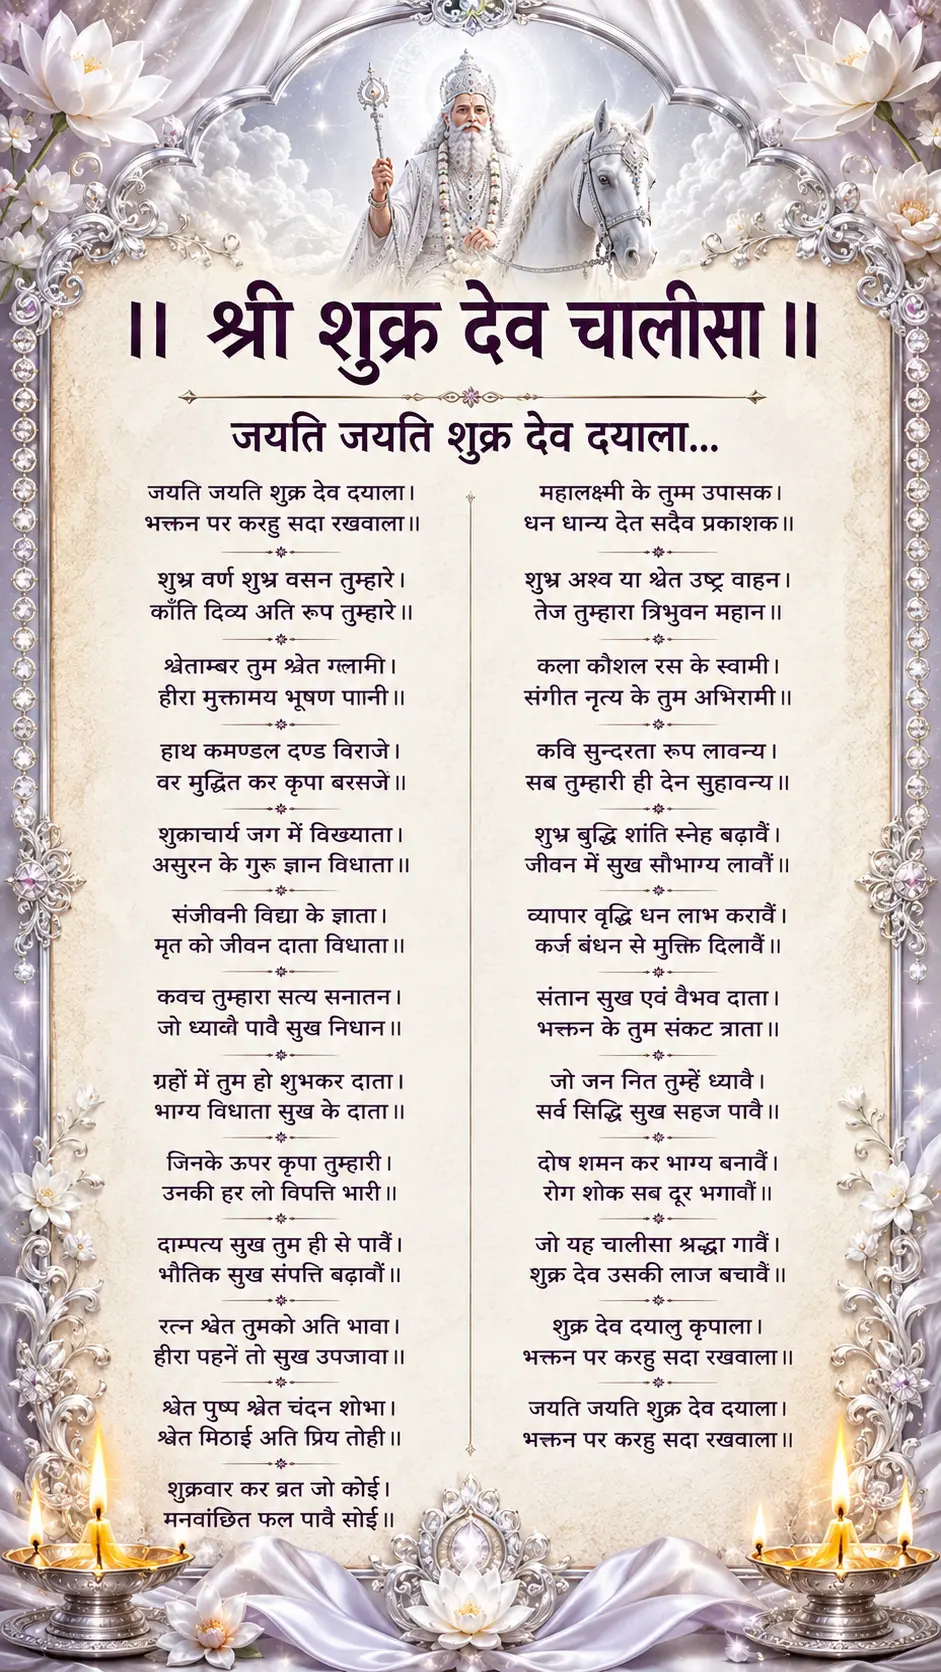 ॥ श्री शुक्र देव चालीसा ॥
जयति जयति शुक्र देव दयाला...
जयति जयति शुक्र देव दयाला।
भक्तन पर करहु सदा रखवाला॥
शुभ्र वर्ण शुभ्र वसन तुम्हारे।
काँति दिव्य अति रूप तुम्हारे॥
श्वेताम्बर तुम श्वेत ग्लामी।
हीरा मुक्तामय भूषण पाानी॥
हाथ कमण्डल दण्ड विराजे।
वर मुद्धित कर कृपा बरसजें॥
शुक्राचार्य जग में विख्याता।
असुरन के गुरू ज्ञान विधाता॥
संजीवनी विद्या के ज्ञाता।
मृत को जीवन दाता विधाता॥
कवच तुम्हारा सत्य सनातन।
जो ध्यावै पावै सुख निधान॥
ग्रहों में तुम हो शुभकर दाता।
भाग्य विधाता सुख के दाता॥
जिनके ऊपर कृपा तुम्हारी।
उनकी हर लो विपत्ति भारी॥
दाम्पत्य सुख तुम ही से पावैं।
भौतिक सुख संपत्ति बढ़ावौं॥
रत्न श्वेत तुमको अति भावा।
हीरा पहनें तो सुख उपजावा॥
श्वेत पुष्प श्वेत चंदन शोभा।
श्वेत मिठाई अति प्रिय तोही॥
शुक्रवार कर व्रत जो कोई।
मनवांछित फल पावै सोई॥
महालक्ष्मी के तुम्म उपासक।
धन धान्य देत सदैव प्रकाशक॥
शुभ्र अश्व या श्वेत उष्ट्र वाहन।
तेज तुम्हारा त्रिभुवन महान॥
कला कौशल रस के स्वामी।
संगीत नृत्य के तुम अभिरामी॥
कवि सुन्दरता रूप लावन्य।
सब तुम्हारी ही देन सुहावन्य॥
शुभ्र बुद्धि शांति स्नेह बढ़ावैं।
जीवन में सुख सौभाग्य लावौं॥
व्यापार वृद्धि धन लाभ करावैं।
कर्ज बंधन से मुक्ति दिलावैं॥
संतान सुख एवं वैभव दाता।
भक्तन के तुम संकट त्राता॥
जो जन नित तुम्हें ध्यावै।
सर्व सिद्धि सुख सहज पावै॥
दोष शमन कर भाग्य बनावैं।
रोग शोक सब दूर भगावौं॥
जो यह चालीसा श्रद्धा गावैं।
शुक्र देव उसकी लाज बचावैं॥
शुक्र देव दयालु कृपाला।
भक्तन पर करहु सदा रखवाला॥
जयति जयति शुक्र देव दयाला।
भक्तन पर करहु सदा रखवाला॥